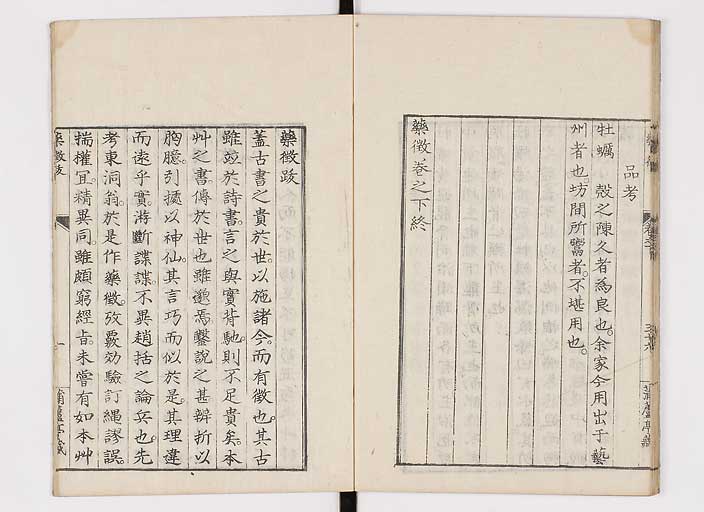 品考
牡蠣 殼之陳久者爲良也。余家今用出于藝
州者也。坊間所鬻者。不堪用也。
藥徵卷之下終
藥徵跋
蓋古書之貴於世。以施諸今。而有徵也。其古
雖竝於詩書。言之與實背馳。則不足貴矣。本
艸之書。傳於世也雖邈焉。鑿說之甚。辨折以
胸臆。引據以神仙。其言巧而似於是。其理違
而遠乎實。游斷諜諜。不異趙括之論兵也。先
考東洞翁。於是作藥徵。攷覈効驗。訂繩謬誤。
揣權宜。精異同。雖頗窮經旨。未嘗有如本艸
藥徵跋
一